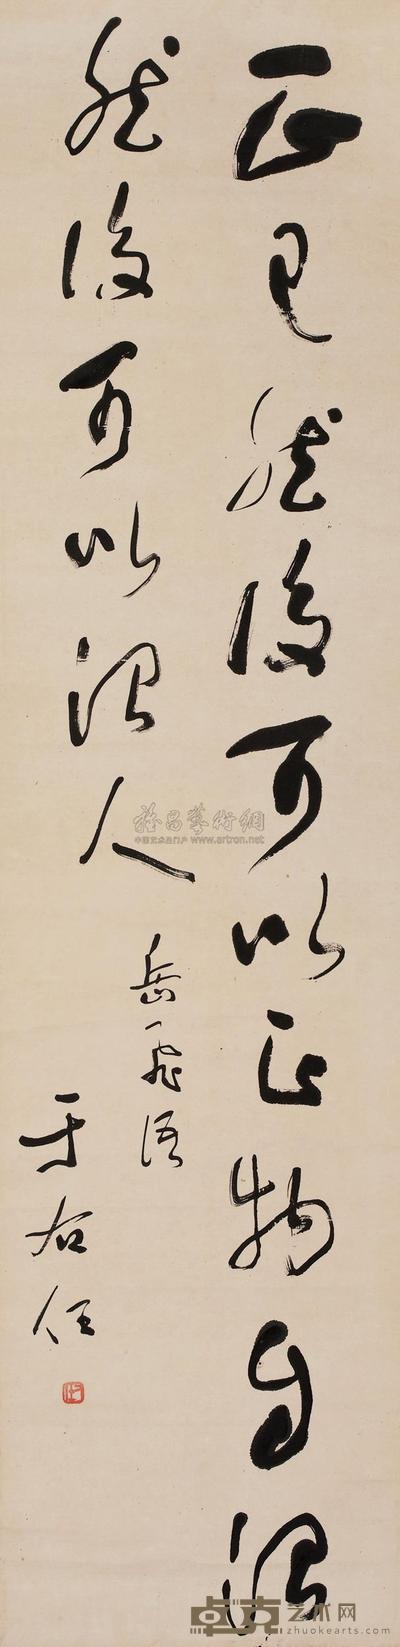 正己然後可以正物自治
然後可以治人
岳飛語
于右任
雅昌藝術網
中国艺术品门户 www.artron.net
卓克艺术网
zhuokearts.com